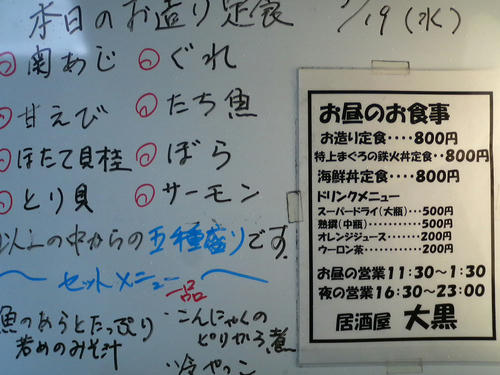 本日のお造り定食 /19(水)
関あじ
ぐれ
甘えび
たち魚
ほたて貝柱
ぼら
とり貝
サーモン
以上の中からの五種盛りです。
セットメニュー
魚のあらとたっぷり
若めのみそ汁
一品
・こんにゃくの
ピリから煮
・冷やっこ
お昼のお食事
お造り定食・・・・800円
特上まぐろの鉄火丼定食・・800円
海鮮丼定食・・・・800円
ドリンクメニュー
スーパードライ(大瓶)・・・500円
熱燗(中瓶)・・・・・・・・・・・500円
オレンジジュース・・・・・・・200円
ウーロン茶・・・・・・・・・・・200円
お昼の営業11:30~1:30
夜の営業16:30~23:00
居酒屋 大黒